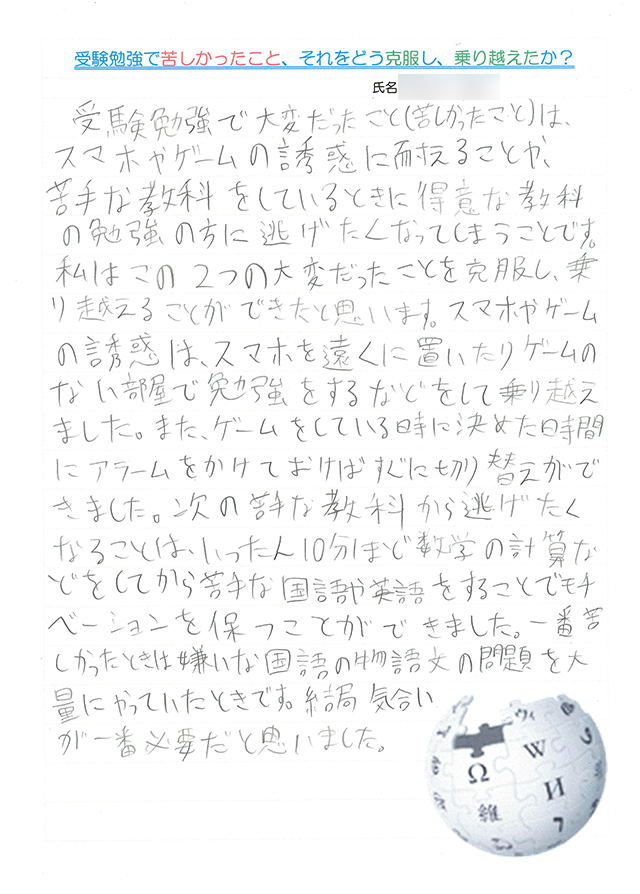 受験勉強で苦しかったこと、それをどう克服し、乗り越えたか？
氏名
受験勉強で大変だったこと(苦しかったこと)は、
スマホやゲームの誘惑に耐えることや、
苦手な教科をしているときに得意な教科
の勉強の方に逃げたくなってしまうことです。
私はこの2つの大変だったことを克服し、乗
り越えることができたと思います。スマホやゲーム
の誘惑は、スマホを遠くに置いたりゲームの
ない部屋で勉強をするなどをして乗り越え
ました。また、ゲームをしている時に決めた時間
にアラームをかけておけばすぐに切り替えがで
きました。次の苦手な教科から逃げたく
なることは、いったん10分ほど数学の計算な
どをしてから苦手な国語や英語をすることでモチ
ベーションを保つことができました。一番苦
しかったときは嫌いな国語の物語文の問題を大
量にやっていたときです。結局気合い
が一番必要だと思いました。
ウィ
W
Ω
И
維
7